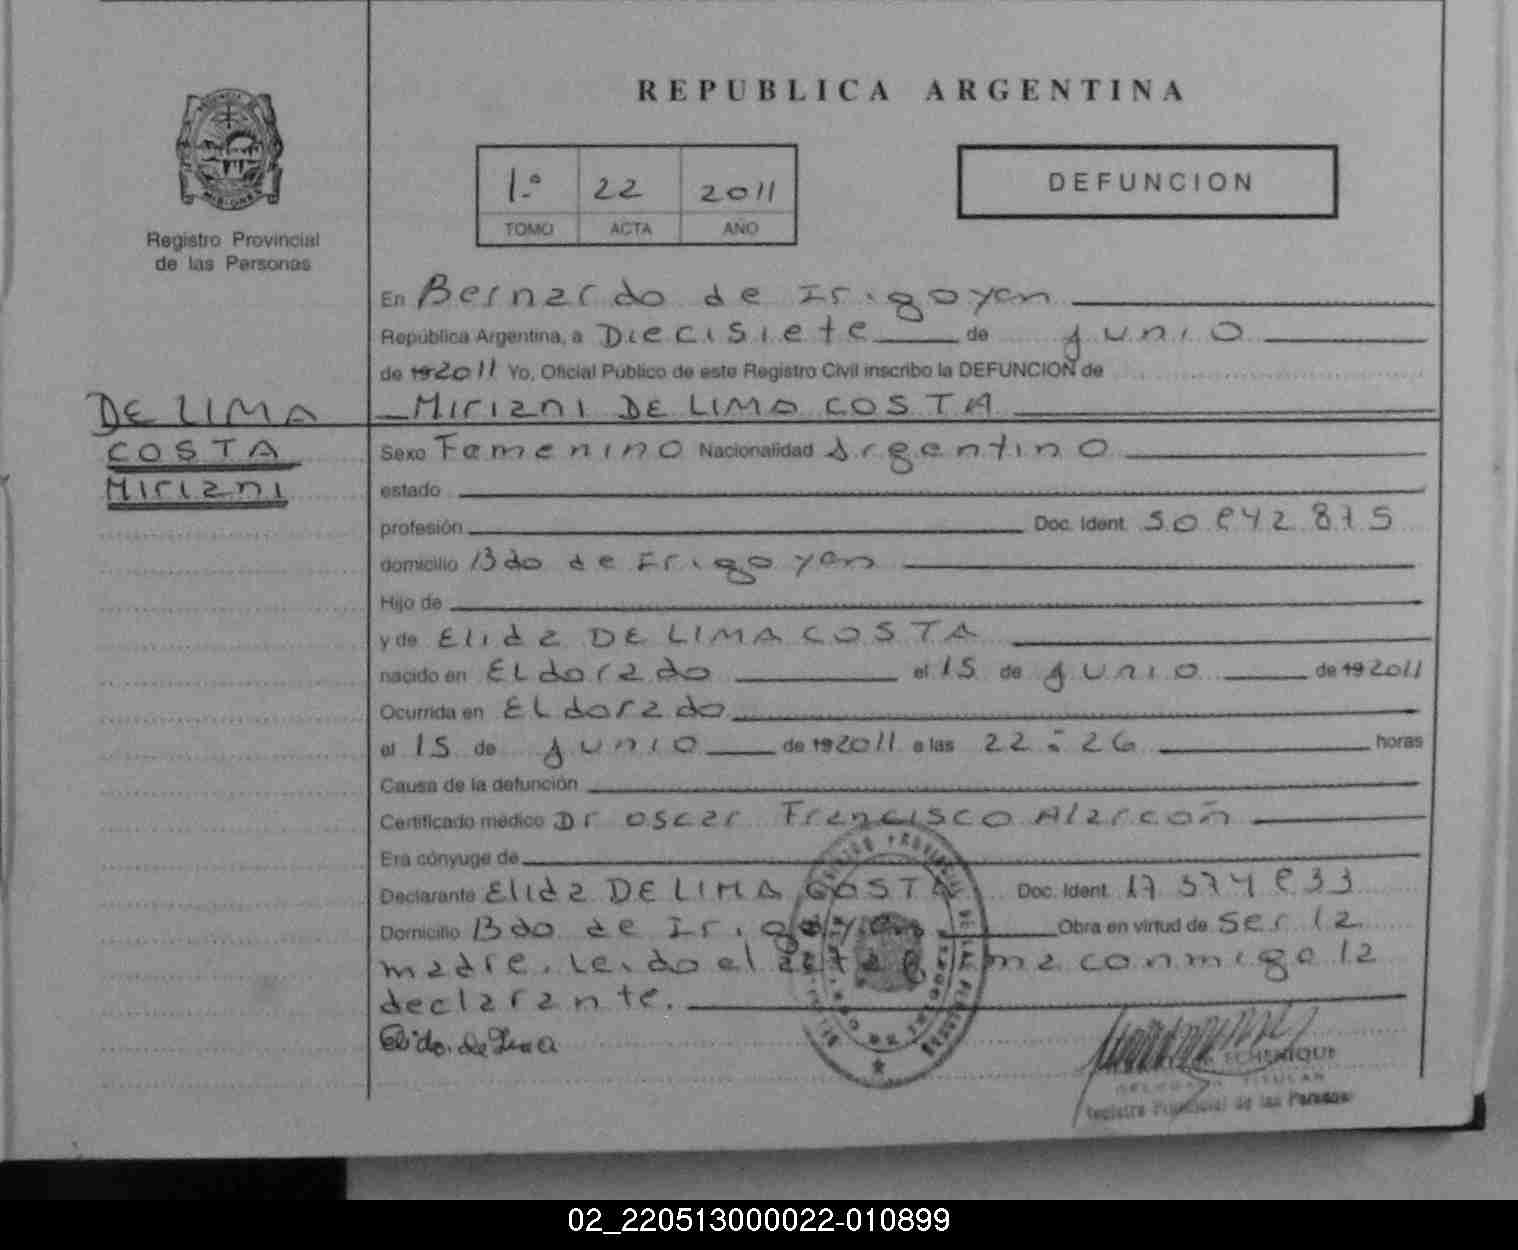 REPUBLICA ARGENTINA
1.º 22 2011
TOMO ACTA AÑO
DEFUNCION
Registro Provincial
de las Personas
En Bernardo de Irigoyen
República Argentina, a Diecisiete de junio
de 192011 Yo, Oficial Público de este Registro Civil inscribo la DEFUNCION de
Miriani DE LIMA COSTA
DE LIMA
COSTA
Miriani
Sexo Femenino Nacionalidad Argentino
estado
profesión Doc. Ident.
domicilio Bdo de Irigoyen
Hijo de
y de Elida DE LIMA COSTA
nacido en ELdorado el 15 de junio de 192011
Ocurrida en ELdorado
el 15 de junio de 192011 a las 22:26 horas
Causa de la defunción
Certificado médico Dr Oscar Francisco Alarcoñ
Era cónyuge de
Declarante Elida DE LIMA COSTA Doc. Ident.
Domicilio Bdo de Irigoyen Obra en virtud de ser la
madre. Leido el acta firma conmigo la
declarante.
Elida de Lima
ECHENIQUE
DELEGADA TITULAR
Registro Provincial de las Personas
02_220513000022-010899